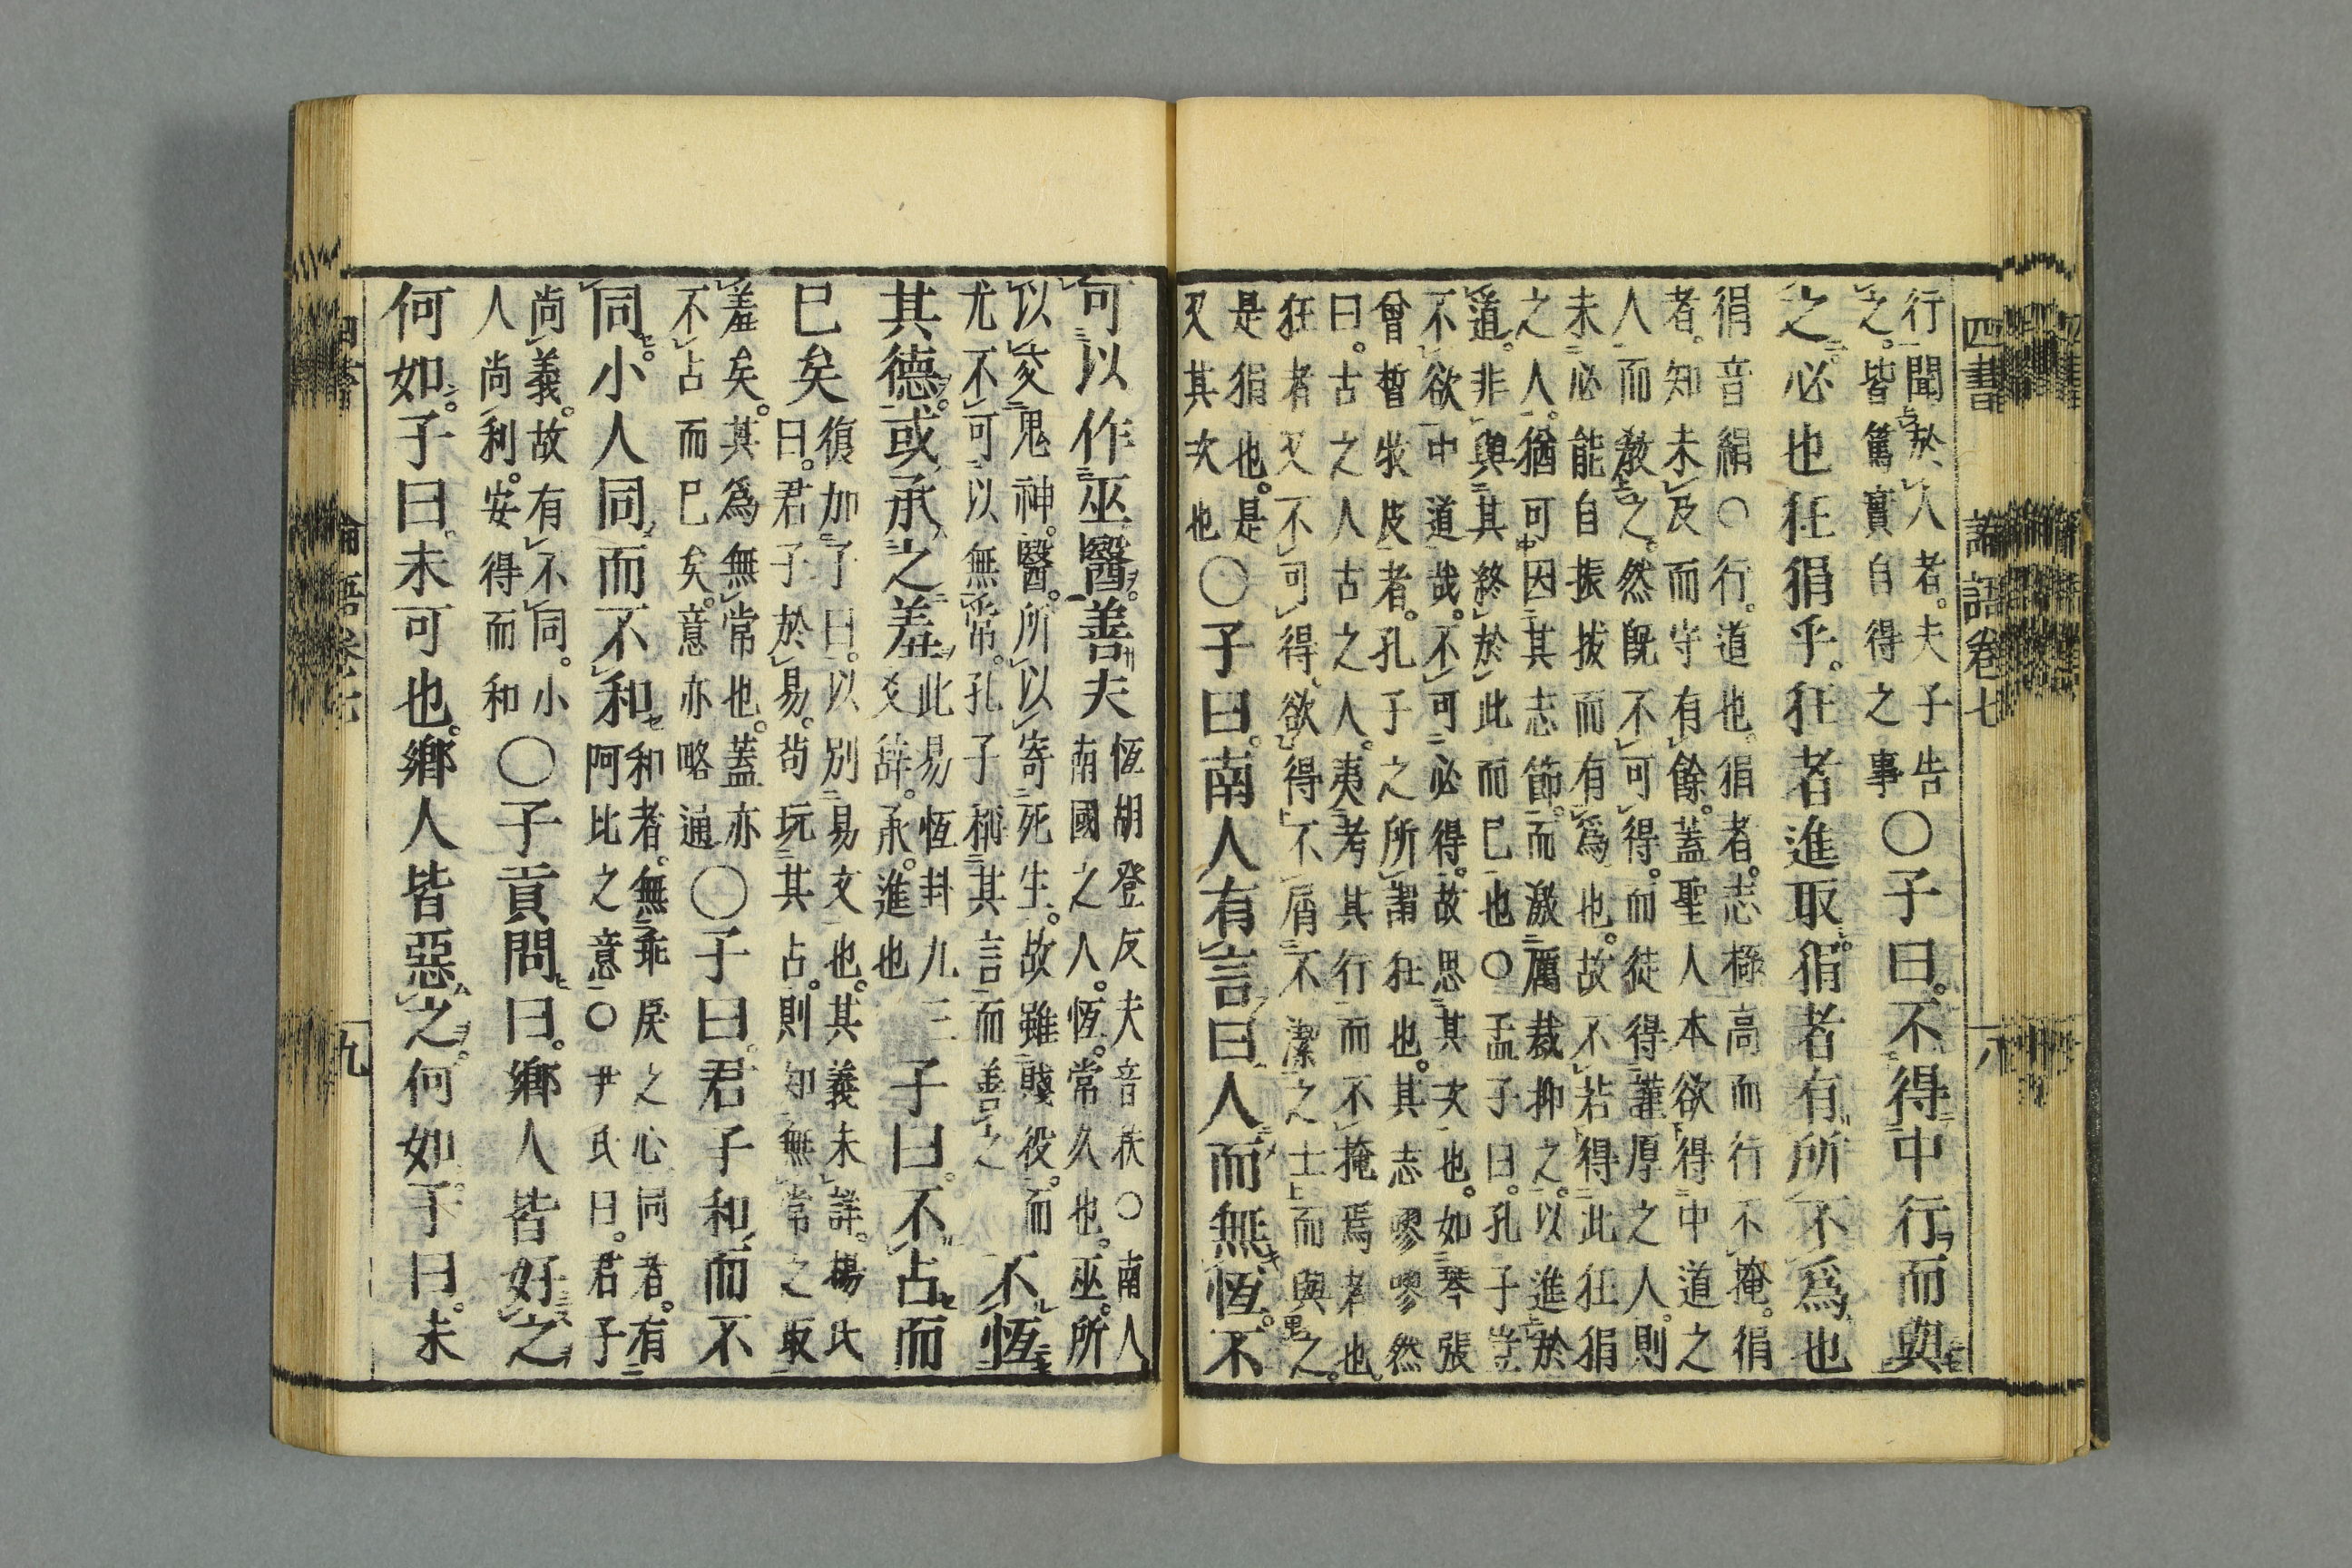 四書 論語卷七 八
行聞於人者。夫子告
之。皆篤實自得之事
〇子曰。不得中行而與
之。必也狂狷乎。狂者進取。狷者有所不爲也
狷音絹〇行。道也。狷者。志極高而行不掩。狷
者。知未及而守有餘。蓋聖人本欲得中道之
人而敎之。然旣不可得。而徒得謹厚之人。則
未必能自振拔而有爲也。故不若得此狂狷
之人。猶可因其志節。而激厲裁抑之。以進於
道。非與其終於此而已也〇孟子曰。孔子豈
不欲中道哉。不可必得。故思其次也。如琴張
曾晳牧皮者。孔子之所謂狂也。其志嘐嘐然
曰。古之人古之人。夷考其行而不掩焉者也。
狂者又不可得。欲得不屑不潔之士而與之。
是狷也。是
又其次也
〇子曰。南人有言曰。人而無恆。不
可以作巫醫。善夫
恆胡登反夫音扶〇南人
南國之人。恆。常久也。巫。所
以交鬼神。醫。所以寄死生。故雖賤役。而
尤不可以無常。孔子稱其言而善之
不恆
其德。或承之羞
此易恆卦九三
爻辭。承。進也
子曰。不占而
已矣
復加子曰。以別易文也。其義未詳。楊氏
曰。君子於易。苟玩其占。則知無常之取
羞矣。其爲無常也。蓋亦
不占而已矣。意亦略通
〇子曰。君子和而不
同。小人同而不和
和者。無乖戾之心同者。有
阿比之意〇尹氏曰。君子
尚義。故有不同。小
人尚利。安得而和
〇子貢問曰。鄕人皆好之
何如。子曰。未可也。鄕人皆惡之。何如。子曰。未
論語卷七 九